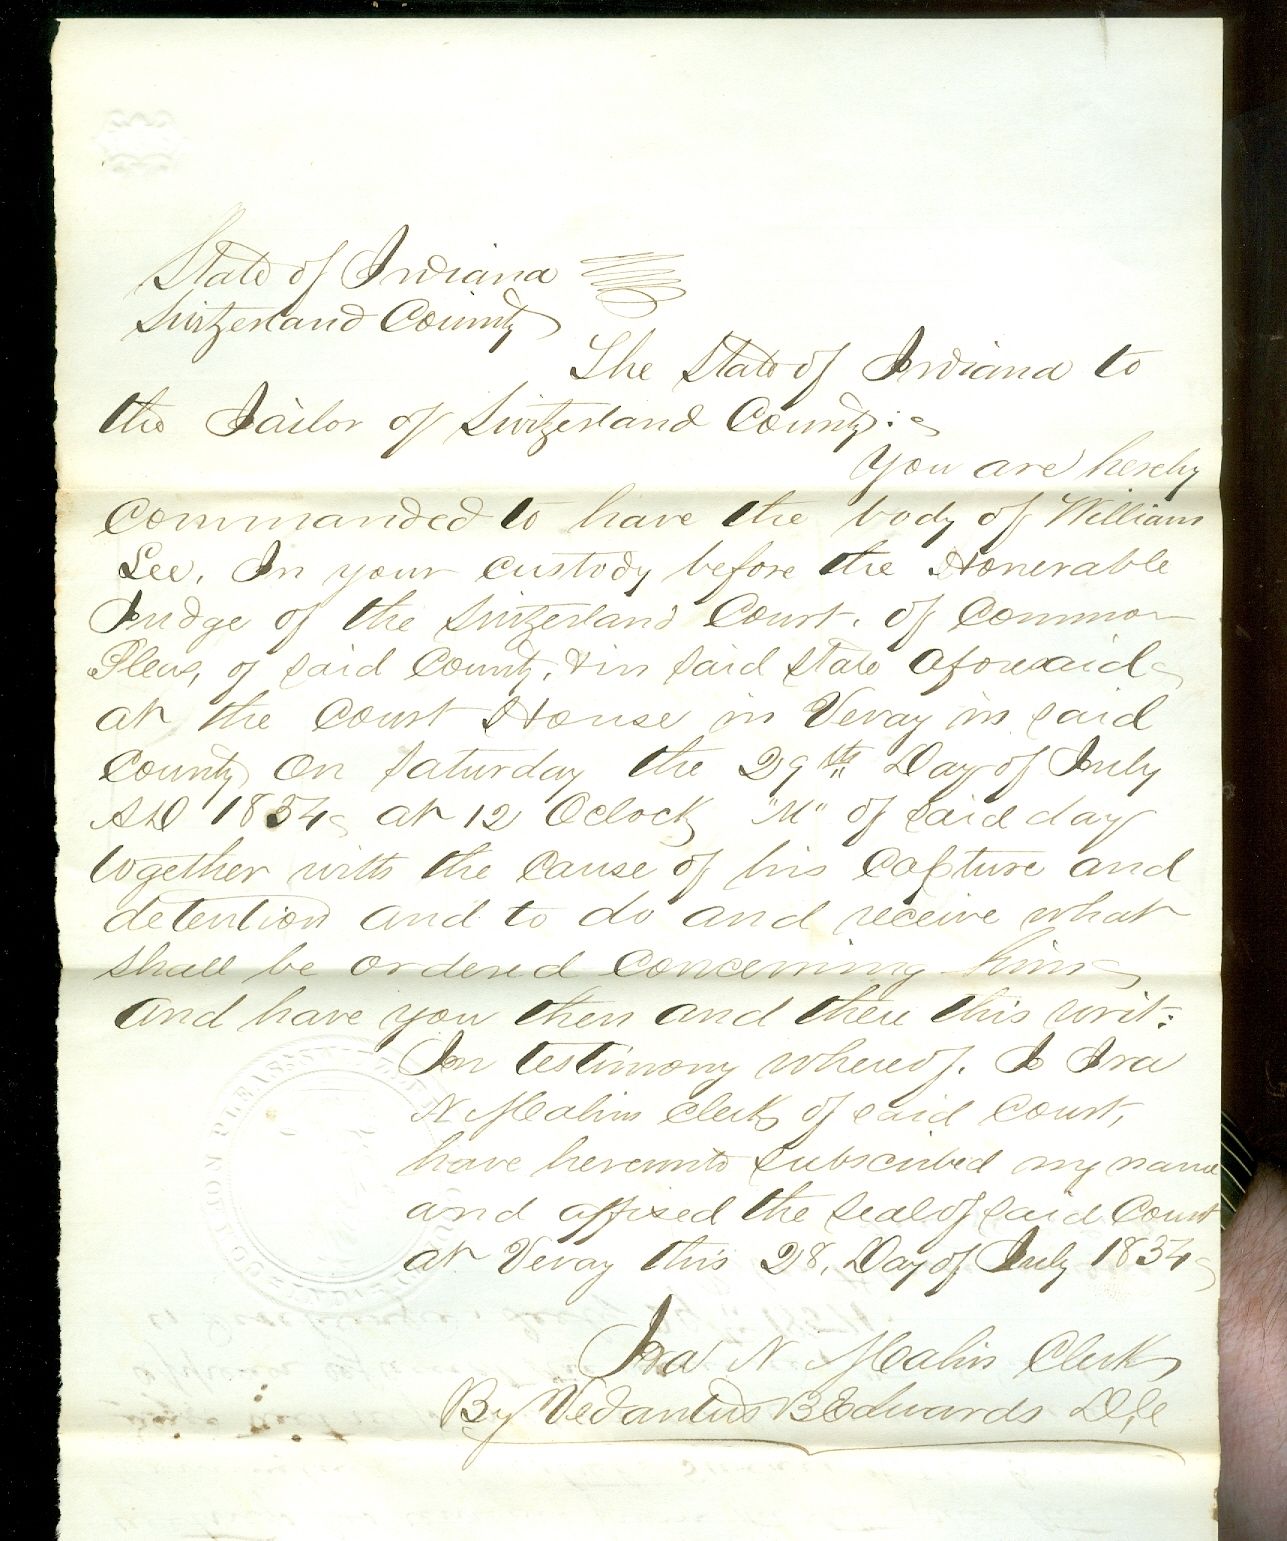 State of Indiana
Switzerland County
The State of Indiana to
the Jailor of Switzerland County:
You are hereby
Commanded to have the body of William
Lee, In your custody before the Honerable
Judge of the Switzerland Court, of Common
Pleas, of said County, & in said State aforesaid
at the Court House in Vevay in said
County on Saturday the 29th Day of July
AD 1854 at 12 Oclock "M" of said day
together with the cause of his Capture and
detention and to do and receive what
shall be ordered concerning him
and have you then and there this writ:
In testimony whereof, I Ira
N Malin Clerk of said Court,
have hereunto subscribed my name
and affixed the seal of said Court
at Vevay this 28, Day of July 1854
Ira N Malin Clerk
By Vedantus B Edwards D,c
COMMON PLEAS